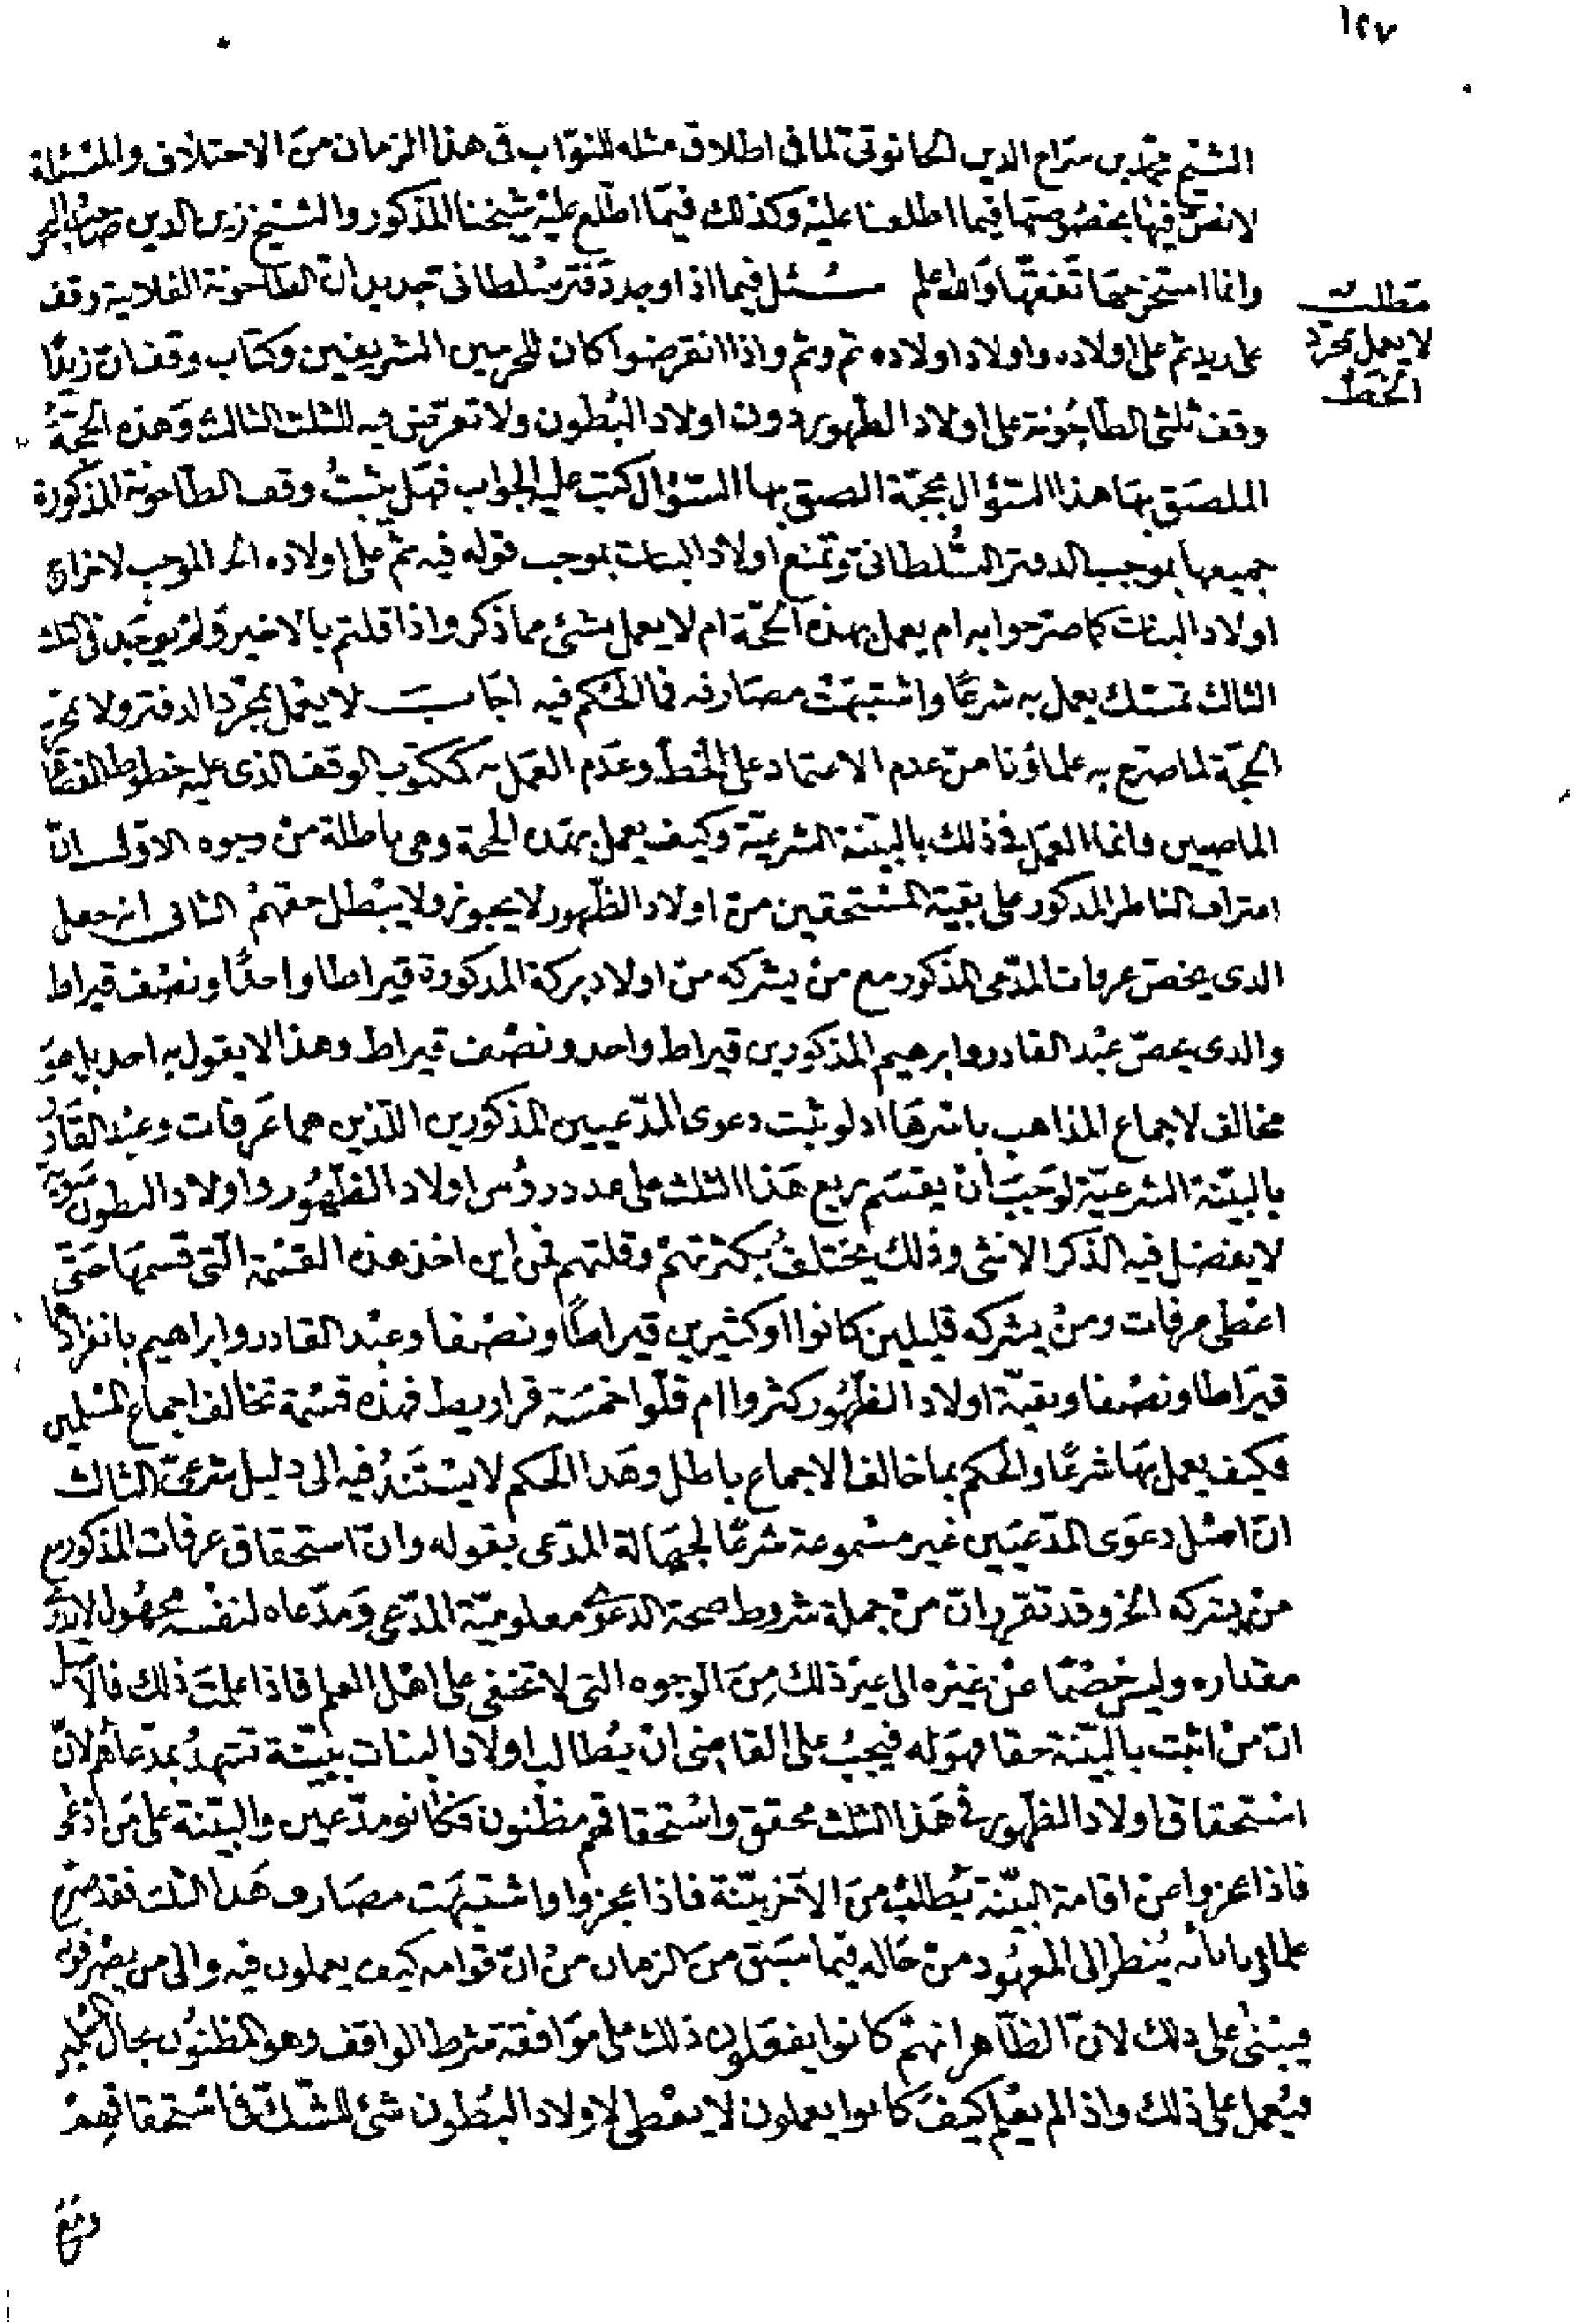 ١٢٧
الشيخ محمد بن سراج الدين الحانوتي لما في اطلاق مثله للنواب في هذا الزمان من الاختلاف والمسئلة
لا نص فيها بخصوصها فيما اطلعنا عليه وكذلك فيما اطلع عليه شيخنا المذكور والشيخ زين الدين صاحب البحر
وانما استخرجها تفقها والله اعلم سئل فيما اذا وجد دفتر سلطاني جديد ان الطاحونة الفلانية وقف
مطلب
لا يعمل بمجرد
الخط
على زيد ثم على اولاده واولاد اولاده ثم وثم واذا انقرضوا كان للحرمين الشريفين وكتاب وقف ان زيدا
وقف ثلثي الطاحونة على اولاد الظهور دون اولاد البطون ولا تعرض فيه للثلث الثالث وهذه الحجة
الملصق بها هذا السؤال بحجة الصق بها السؤال كتب عليه الجواب فهل يثبت وقف الطاحونة المذكورة
جميعها بموجب الدفتر السلطاني وتمنع اولاد البنات بموجب قوله فيه ثم على اولاده الخ الموجب لاخراج
اولاد البنات كما صرحوا به ام يعمل بهذه الحجة ام لا يعمل بشئ مما ذكر واذا قلتم بالاخير ولم يوجد في الثلث
الثالث تمسك يعمل به شرعا واشتبهت مصارفه فما الحكم فيه اجاب لا يعمل بمجرد الدفتر ولا بمجرد
الحجة لما صرح به علماؤنا من عدم الاعتماد على الخط وعدم العمل به كمكتوب الوقف الذي عليه خطوط القضاة
الماضيين وانما العمل في ذلك بالبينة الشرعية وكيف يعمل بهذه الحجة وهي باطلة من وجوه الاول ان
اعتراف الناظر المذكور على بقية المستحقين من اولاد الظهور لا يجوز ولا يبطل حقهم الثاني انه جعل
الذي يخص عرفات المدعي المذكور مع من يشركه من اولاد بركة المذكورة قيراطا واحدا ونصف قيراط
والذي يخص عبد القادر وابرهيم المذكورين قيراط واحد ونصف قيراط وهذا لا يقول به احد بل هو
مخالف لاجماع المذاهب باسرها اذ لو ثبت دعوى المدعيين المذكورين اللذين هما عرفات وعبد القادر
بالبينة الشرعية لوجب ان يقسم ريع هذا الثلث على عدد رؤس اولاد الظهور واولاد البطون سوية
لا يفضل فيه الذكر الانثى وذلك يختلف بكثرتهم وقلتهم فمن اين اخذ هذه القسمة التي قسمها حتى
اعطى عرفات ومن يشركه قليلين كانوا او كثيرين قيراطا ونصفا وعبد القادر وابراهيم بانفرادهما
قيراطا ونصفا وبقية اولاد الظهور كثروا ام قلوا خمسة قراريط فهذه قسمة تخالف اجماع المسلمين
فكيف يعمل بها شرعا والحكم بما خالف الاجماع باطل وهذا الحكم لا يستند فيه الى دليل شرعي الثالث
ان اصل دعوى المدعيين غير مسموعة شرعا لجهالة المدعى بقوله وان استحقاق عرفات المذكور مع
من يشركه الخ وقد تقرر ان من جملة شروط صحة الدعوى معلومية المدعي ومدعاه لنفسه مجهول لا يدري
مقداره وليس خصما عن غيره الى غير ذلك من الوجوه التي لا تخفى على اهل العلم فاذا علمت ذلك فالاصل
ان من اثبت بالبينة حقا فهو له فيجب على القاضي ان يطالب اولاد البنات ببينة تشهد بمدعاهم لان
استحقاق اولاد الظهور في هذا الثلث محقق واستحقاقهم مظنون فكانو مدعيين والبينة على من ادعى
فاذا عجزوا عن اقامة البينة يطلب من الآخر بينة فاذا عجزوا واشتبهت مصارف هذا الثلث فقد صرح
علماؤنا بانه ينظر الى المعهود من حاله فيما سبق من الزمان من ان قوامه كيف يعملون فيه والى من يصرفونه
فيبنى على ذلك لان الظاهر انهم كانوا يفعلون ذلك على موافقة شرط الواقف وهو المظنون بحال المسلمين
فيعمل على ذلك واذا لم يعلم كيف كانوا يعملون لا يعطى لاولاد البطون شئ للشك في استحقاقهم